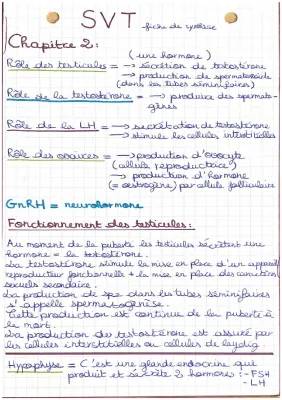 SVT - fiche de synthèse
Chapitre 2:
(une hormone)
Rôle des testicules = → sécrétion de testostérone
→ production de spermatozoïde
(dans les tubes séminifères)
Rôle de la testostérone = → produire des spermato-
gères
Rôle de la LH = → secrétation de testostérone
→ stimule les cellules interstitielles
Rôle des ovaires = → production d'ovocyte
(cellule reproductrice)
→ production d'hormone
(= oestrogène) par cellule folliculaire
GnRH = neurohormone
Fonctionnement des testicules:
Au moment de la puberté les testicules sécrètent une
hormone = la testostérone.
La testostérone stimule la mise en place d'un appareil
reproducteur fonctionnelle + la mise en place des caractères
sexuels secondaire.
La production de spz dans les tubes séminifères
s'appelle spermatogénèse.
Cette production est continue de la puberté à
la mort.
La production de testostérone est assuré par
les cellules interstitielles ou cellules de leydig.
Hypophyse = C'est une glande endocrine qui
produit et sécrète 2 hormones: - FSH
- LH